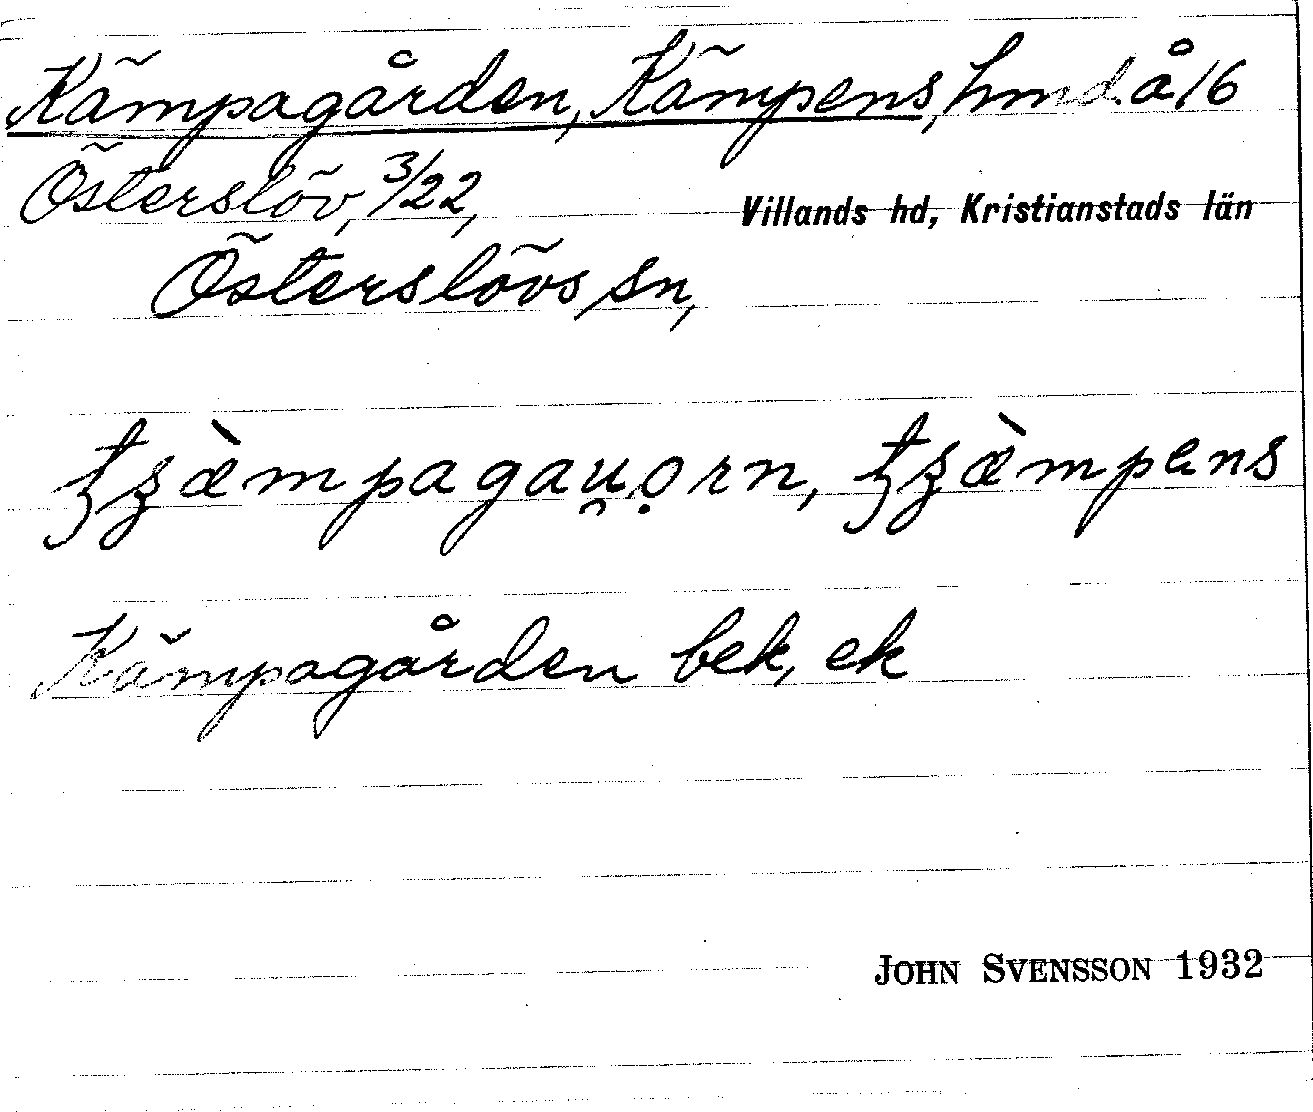 Kämpagården, Kämpens, hmd å 16
Österslöv, 3/22,
Villands hd, Kristianstads län
Österslövs sn,
Kämpagården bek, ek
JOHN SVENSSON 1932